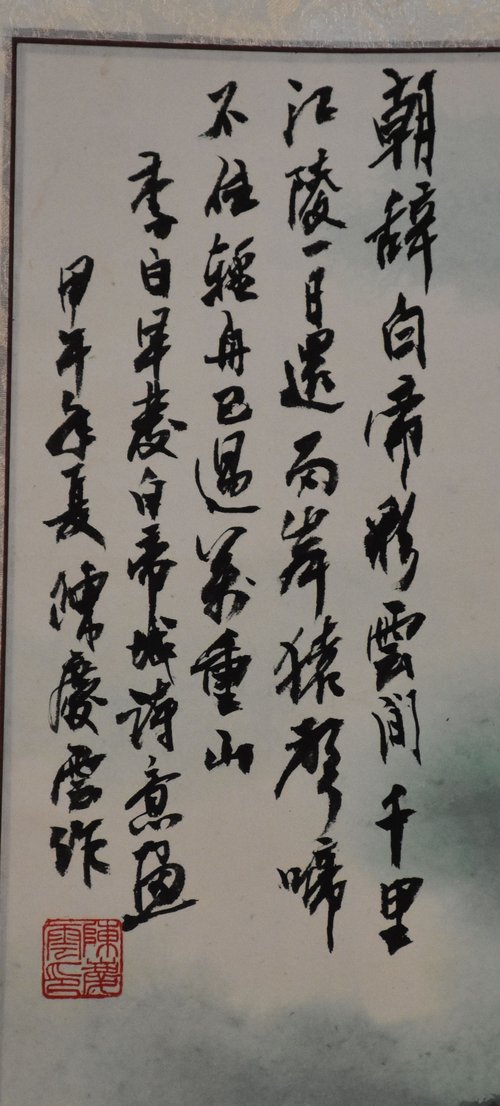 朝辞白帝彩雲間千里
江陵一日還两岸猿聲啼
不住輕舟已過萬重山
李白早發白帝城詩意畫
甲午年夏陳慶雲作
陳慶雲印